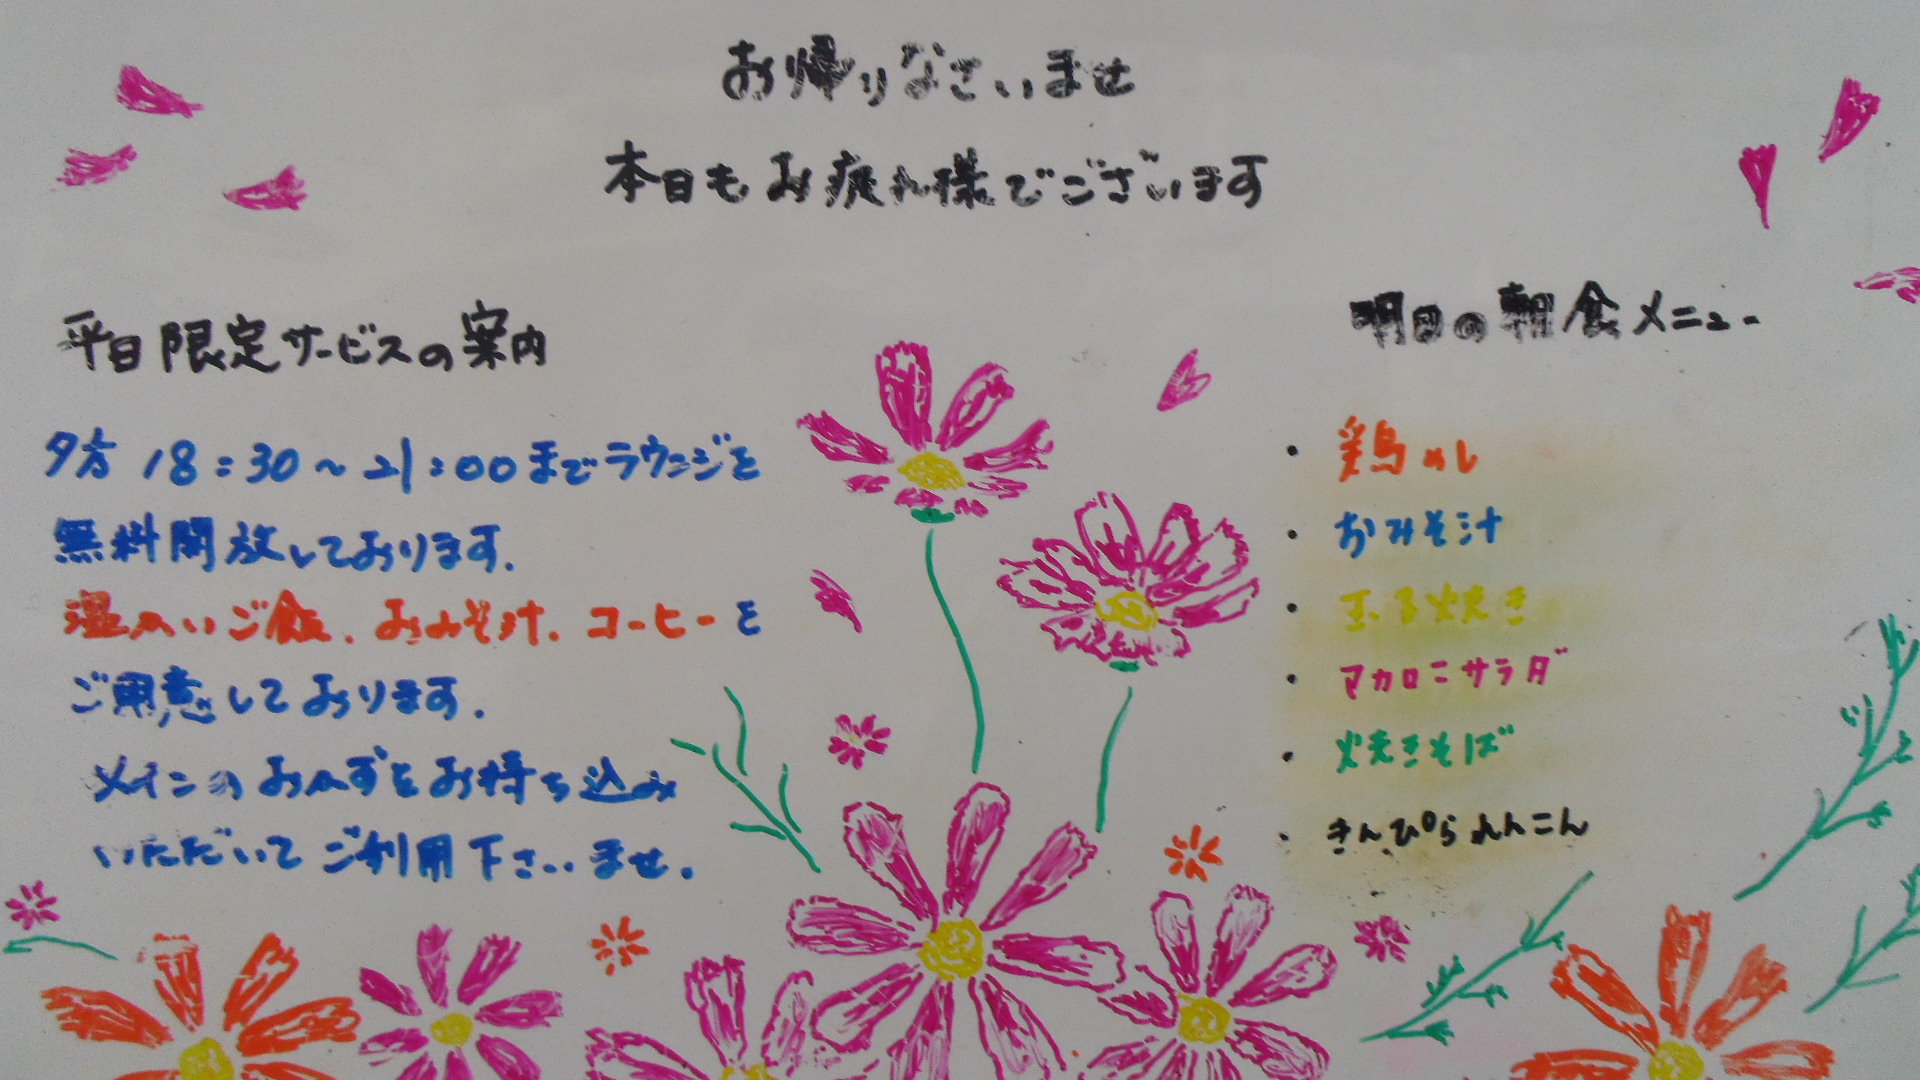 お帰りなさいませ
本日もお疲れ様でございます
平日限定サービスの案内
夕方 18:30～21:00までラウンジを
無料開放しております.
温かいご飯、おみそ汁、コーヒーを
ご用意しております.
メインのおかずをお持ち込み
いただいてご利用下さいませ.
明日の朝食メニュー
・鶏めし
・おみそ汁
・玉子焼き
・マカロニサラダ
・焼きそば
・きんぴられんこん